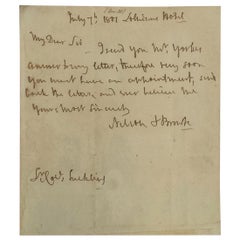 July 7th: 1801 Lothians Hotel
My Dear Sir
I send you Mr. Yorkes
answer to my letter, therefore very soon
you must have an appointment, send
back the letter and ever believe me
Yours most sincerely
Nelson & Bronte
Sr. Edwd: